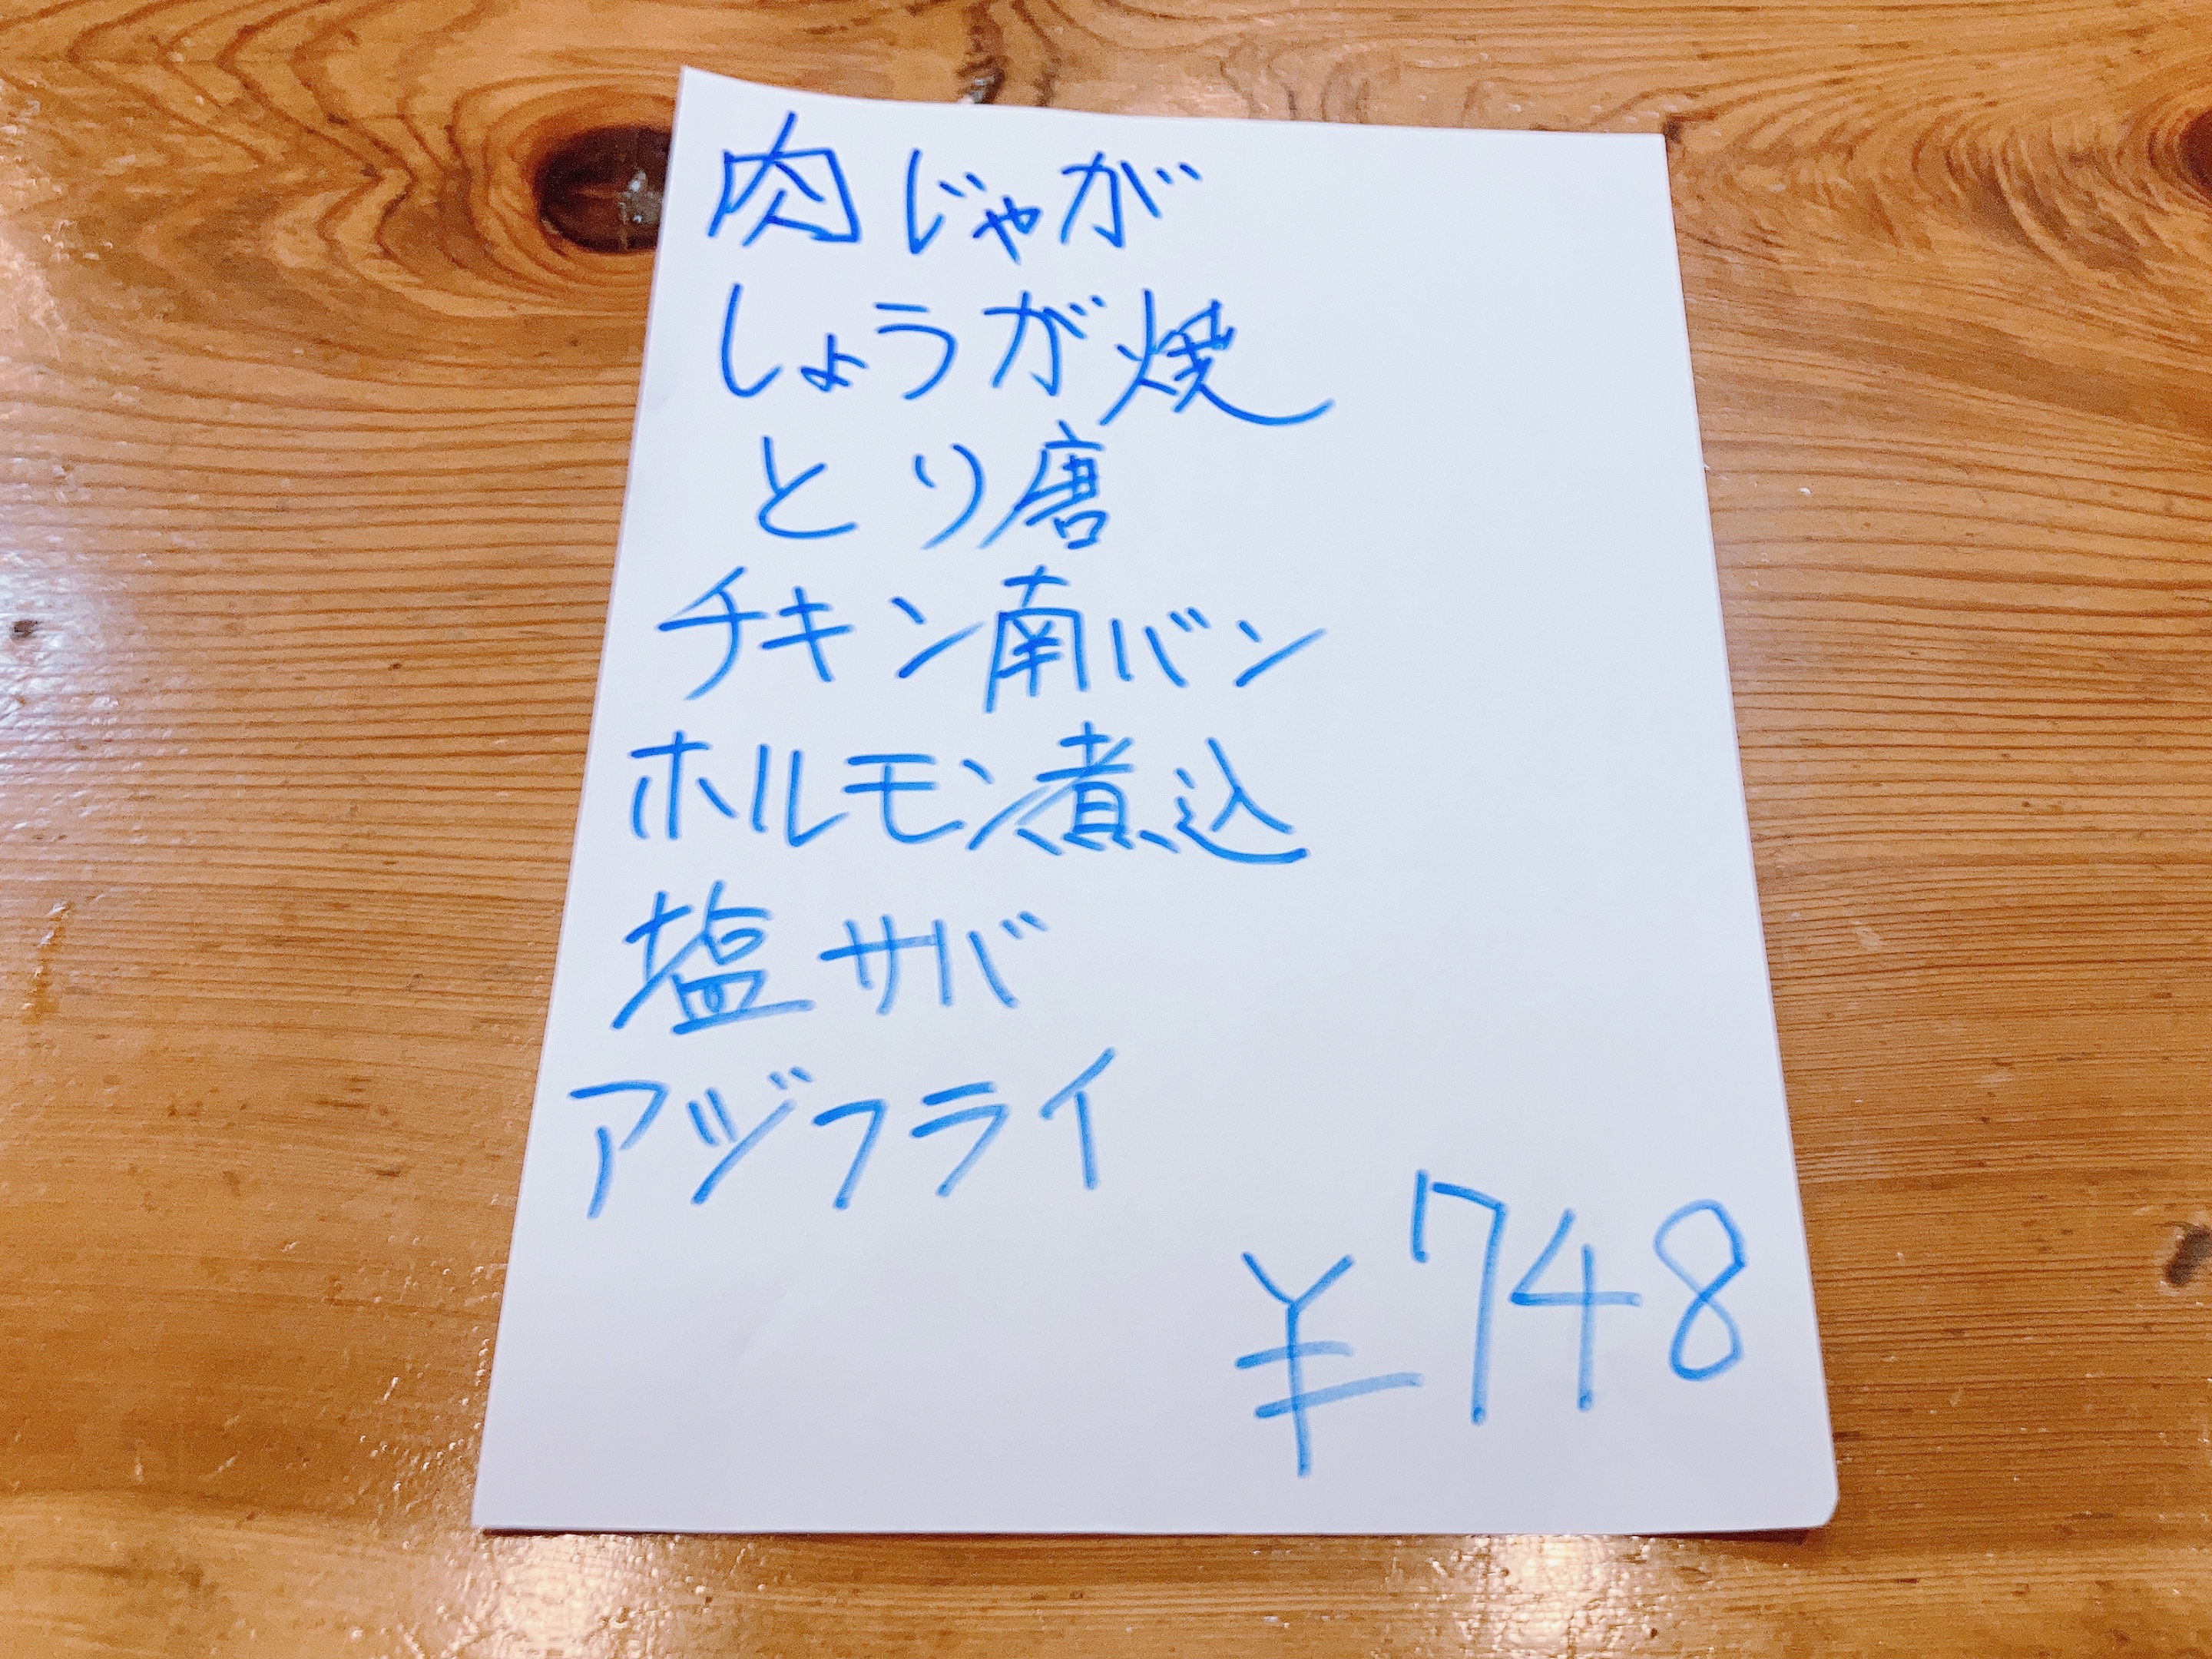 肉じゃが
しょうが焼
とり唐
チキン南バン
ホルモン煮込
塩サバ
アジフライ
¥748